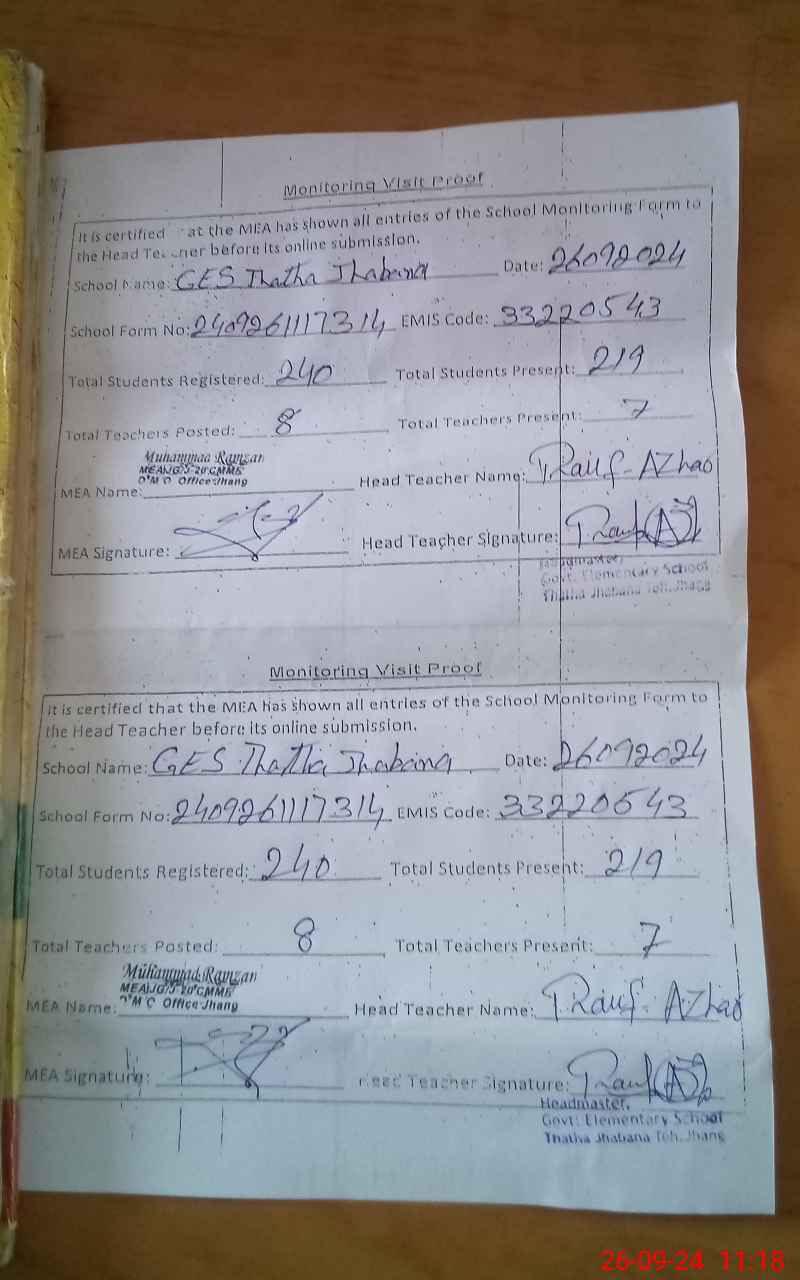 Monitoring Visit Proof
It is certified at the MEA has shown all entries of the School Monitoring Form to
the Head Teacher before its online submission.
School Name: GES Thatha Jhabana Date: 26092024
School Form No: 2409261117314 EMIS Code: 33220543
Total Students Registered: 240 Total Students Present: 219
Total Teachers Posted: 8 Total Teachers Present: 7
Muhammad Ramzan
Office Jhang
MEA Name: Head Teacher Name: Rauf Azhar
MEA Signature: Head Teacher Signature: Rauf
Headmaster,
Govt. Elementary School
Thatha Jhabana Teh. Jhang
Monitoring Visit Proof
It is certified that the MEA has shown all entries of the School Monitoring Form to
the Head Teacher before its online submission.
School Name: GES Thatha Jhabana Date: 26092024
School Form No: 2409261117314 EMIS Code: 33220543
Total Students Registered: 240 Total Students Present: 219
Total Teachers Posted: 8 Total Teachers Present: 7
Muhammad Ramzan
Office Jhang
MEA Name: Head Teacher Name: Rauf Azhar
MEA Signature: Head Teacher Signature: Rauf
Headmaster,
Govt: Elementary School
Thatha Jhabana Teh. Jhang
26-09-24 11:18